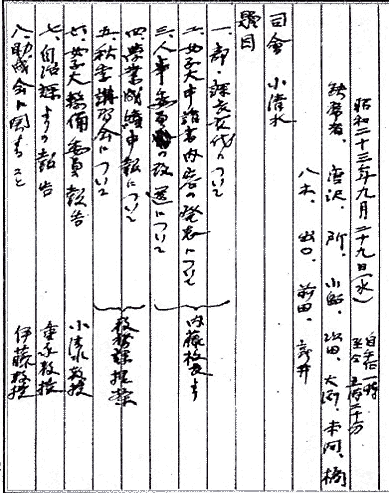 昭和二十三年九月二十九日(水)
自午后一時
至仝 五時二十分
缺席者、唐沢、所、小船、沢田、大浦、本河、橋
八木、出口、前田、
司會 小清水
題目
一、部・課長交代について
二、女子大申請書内容の発表について
三、人事委員の改選について
内藤校長より
四、學業成績申報について
五、秋季講習会について
教務課提案
六、女子大整備委員報告
小清水教授
七、自治課よりの報告
重永教授
八、助成会に関すること
伊藤教授